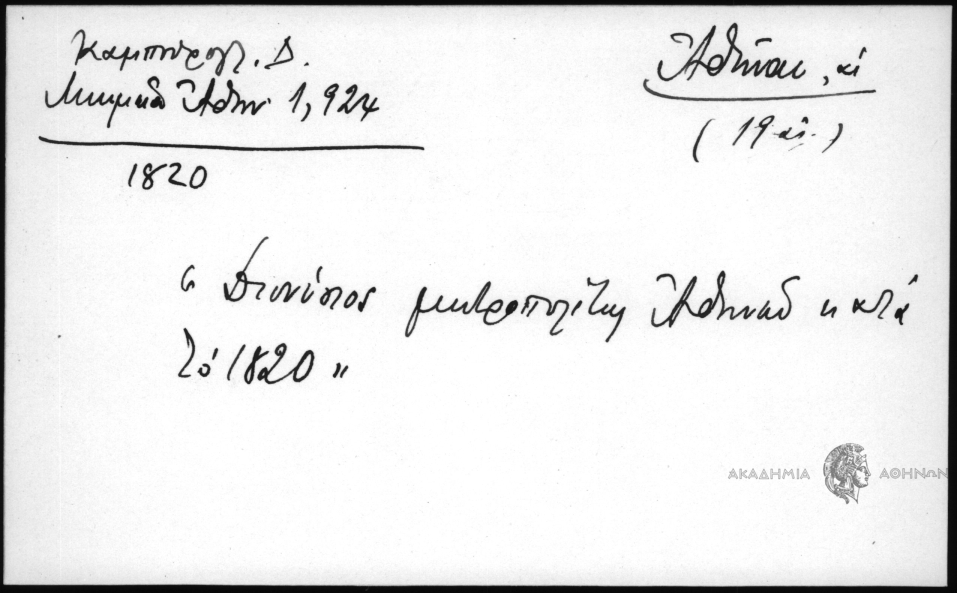 Καμπούρογλ. Δ.
Μνημεῖα Ἀθην 1, 924
1820
Ἀθῆναι, αἱ
(19 αἰ.)
"Διονύσιος μητροπολίτης Ἀθηνῶν κατά
τό 1820"
ΑΚΑΔΗΜΙΑ ΑΘΗΝΩΝ